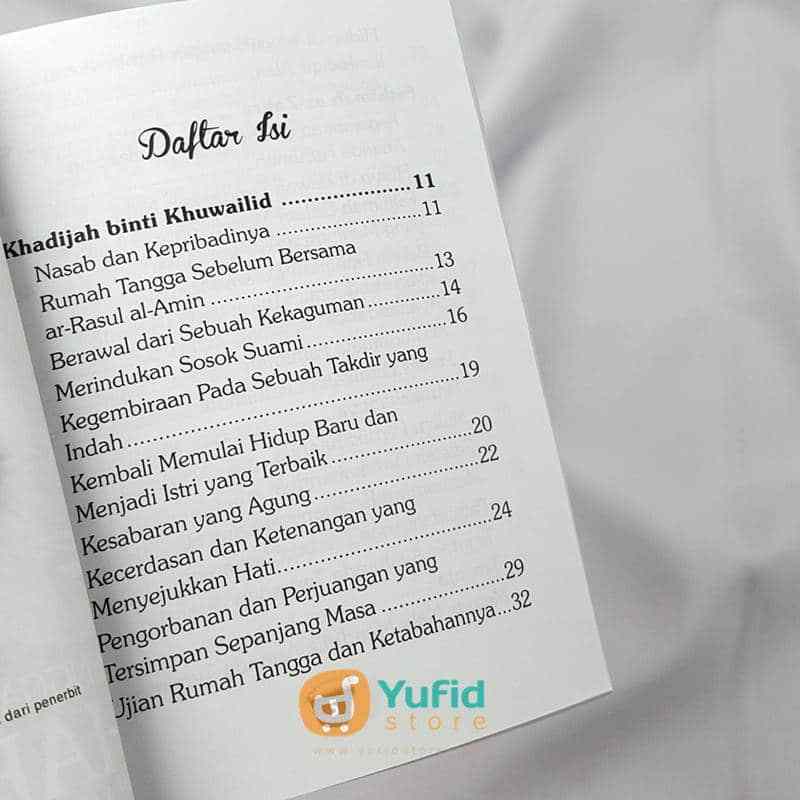 Daftar Isi
Khadijah binti Khuwailid ....................11
Nasab dan Kepribadinya .......................11
Rumah Tangga Sebelum Bersama
ar-Rasul al-Amin ...................................13
Berawal dari Sebuah Kekaguman...........14
Merindukan Sosok Suami......................16
Kegembiraan Pada Sebuah Takdir yang
Indah....................................................19
Kembali Memulai Hidup Baru dan
Menjadi Istri yang Terbaik......................20
Kesabaran yang Agung..........................22
Kecerdasan dan Ketenangan yang
Menyejukkan Hati.................................24
Pengorbanan dan Perjuangan yang
Tersimpan Sepanjang Masa ...................29
Ujian Rumah Tangga dan Ketabahannya...32
dari penerbit
Yufid
store